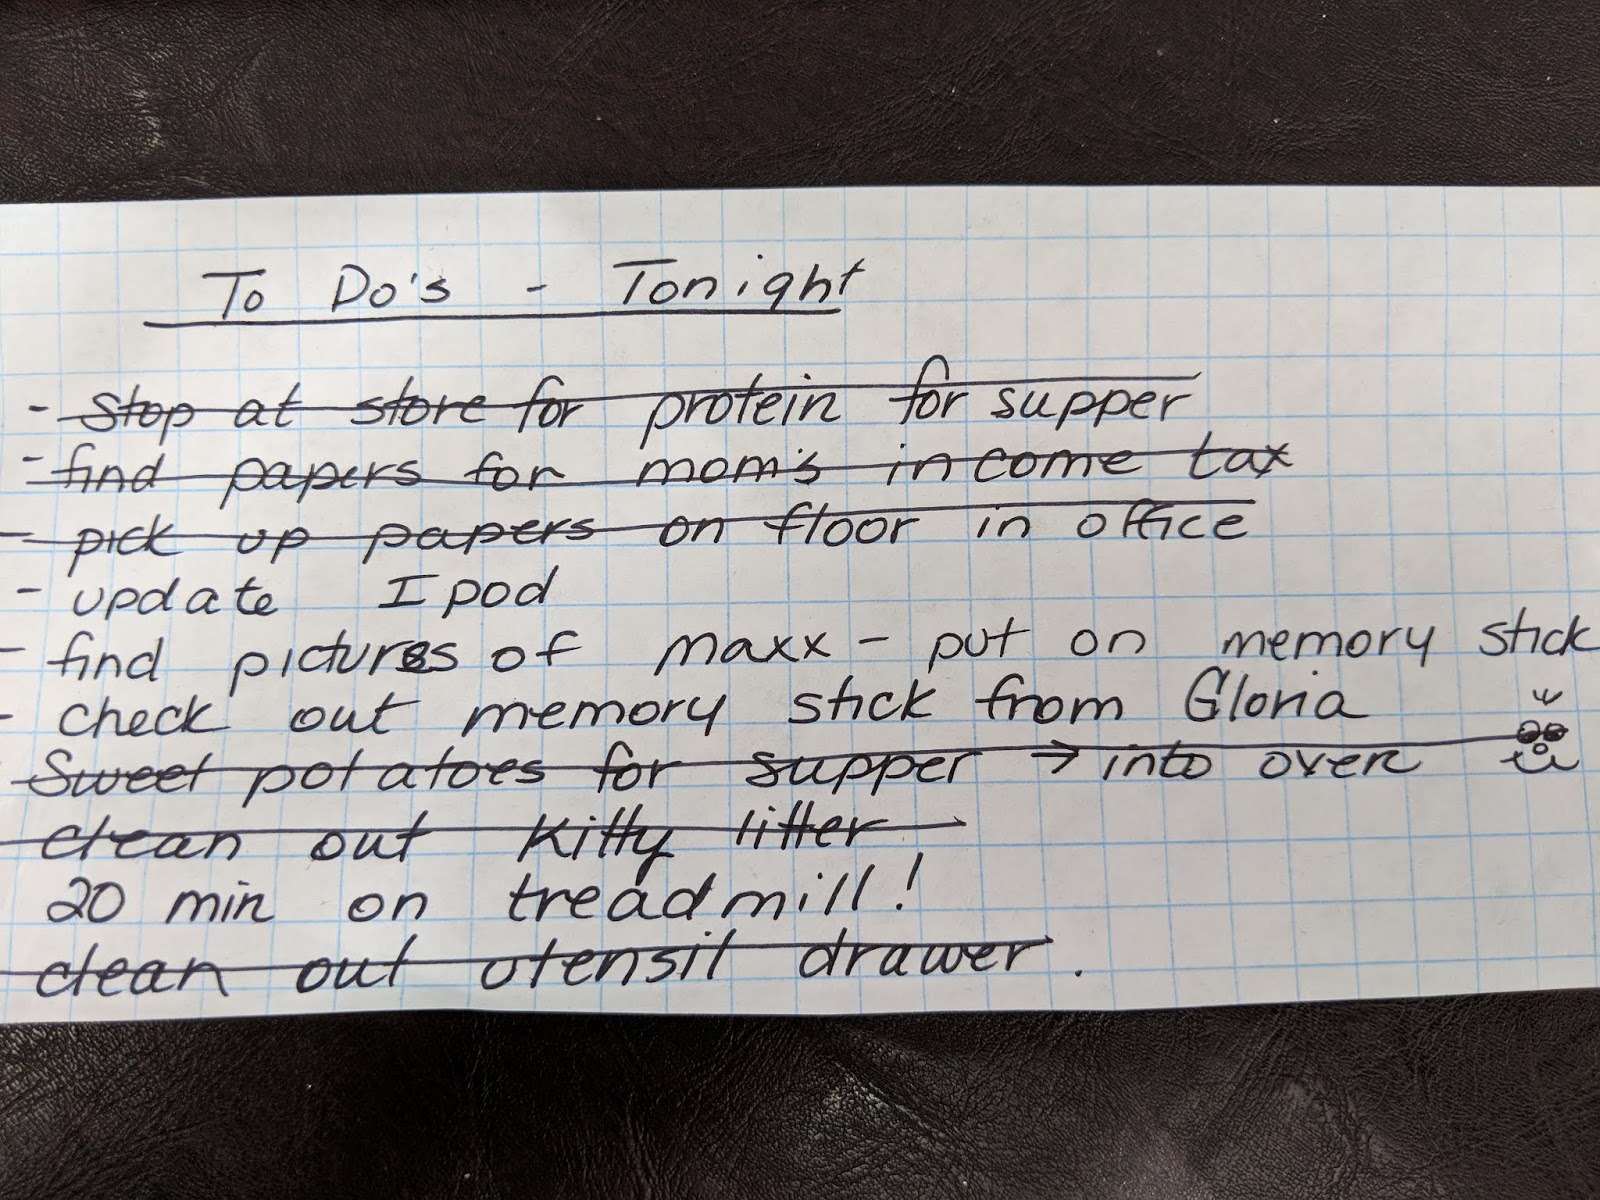 To Do's - Tonight
- Stop at store for protein for supper
- find papers for mom's income tax
- pick up papers on floor in office
- update Ipod
- find pictures of maxx - put on memory stick
- check out memory stick from Gloria
- Sweet potatoes for supper → into oven
clean out Kitty litter
20 min on treadmill!
clean out utensil drawer.